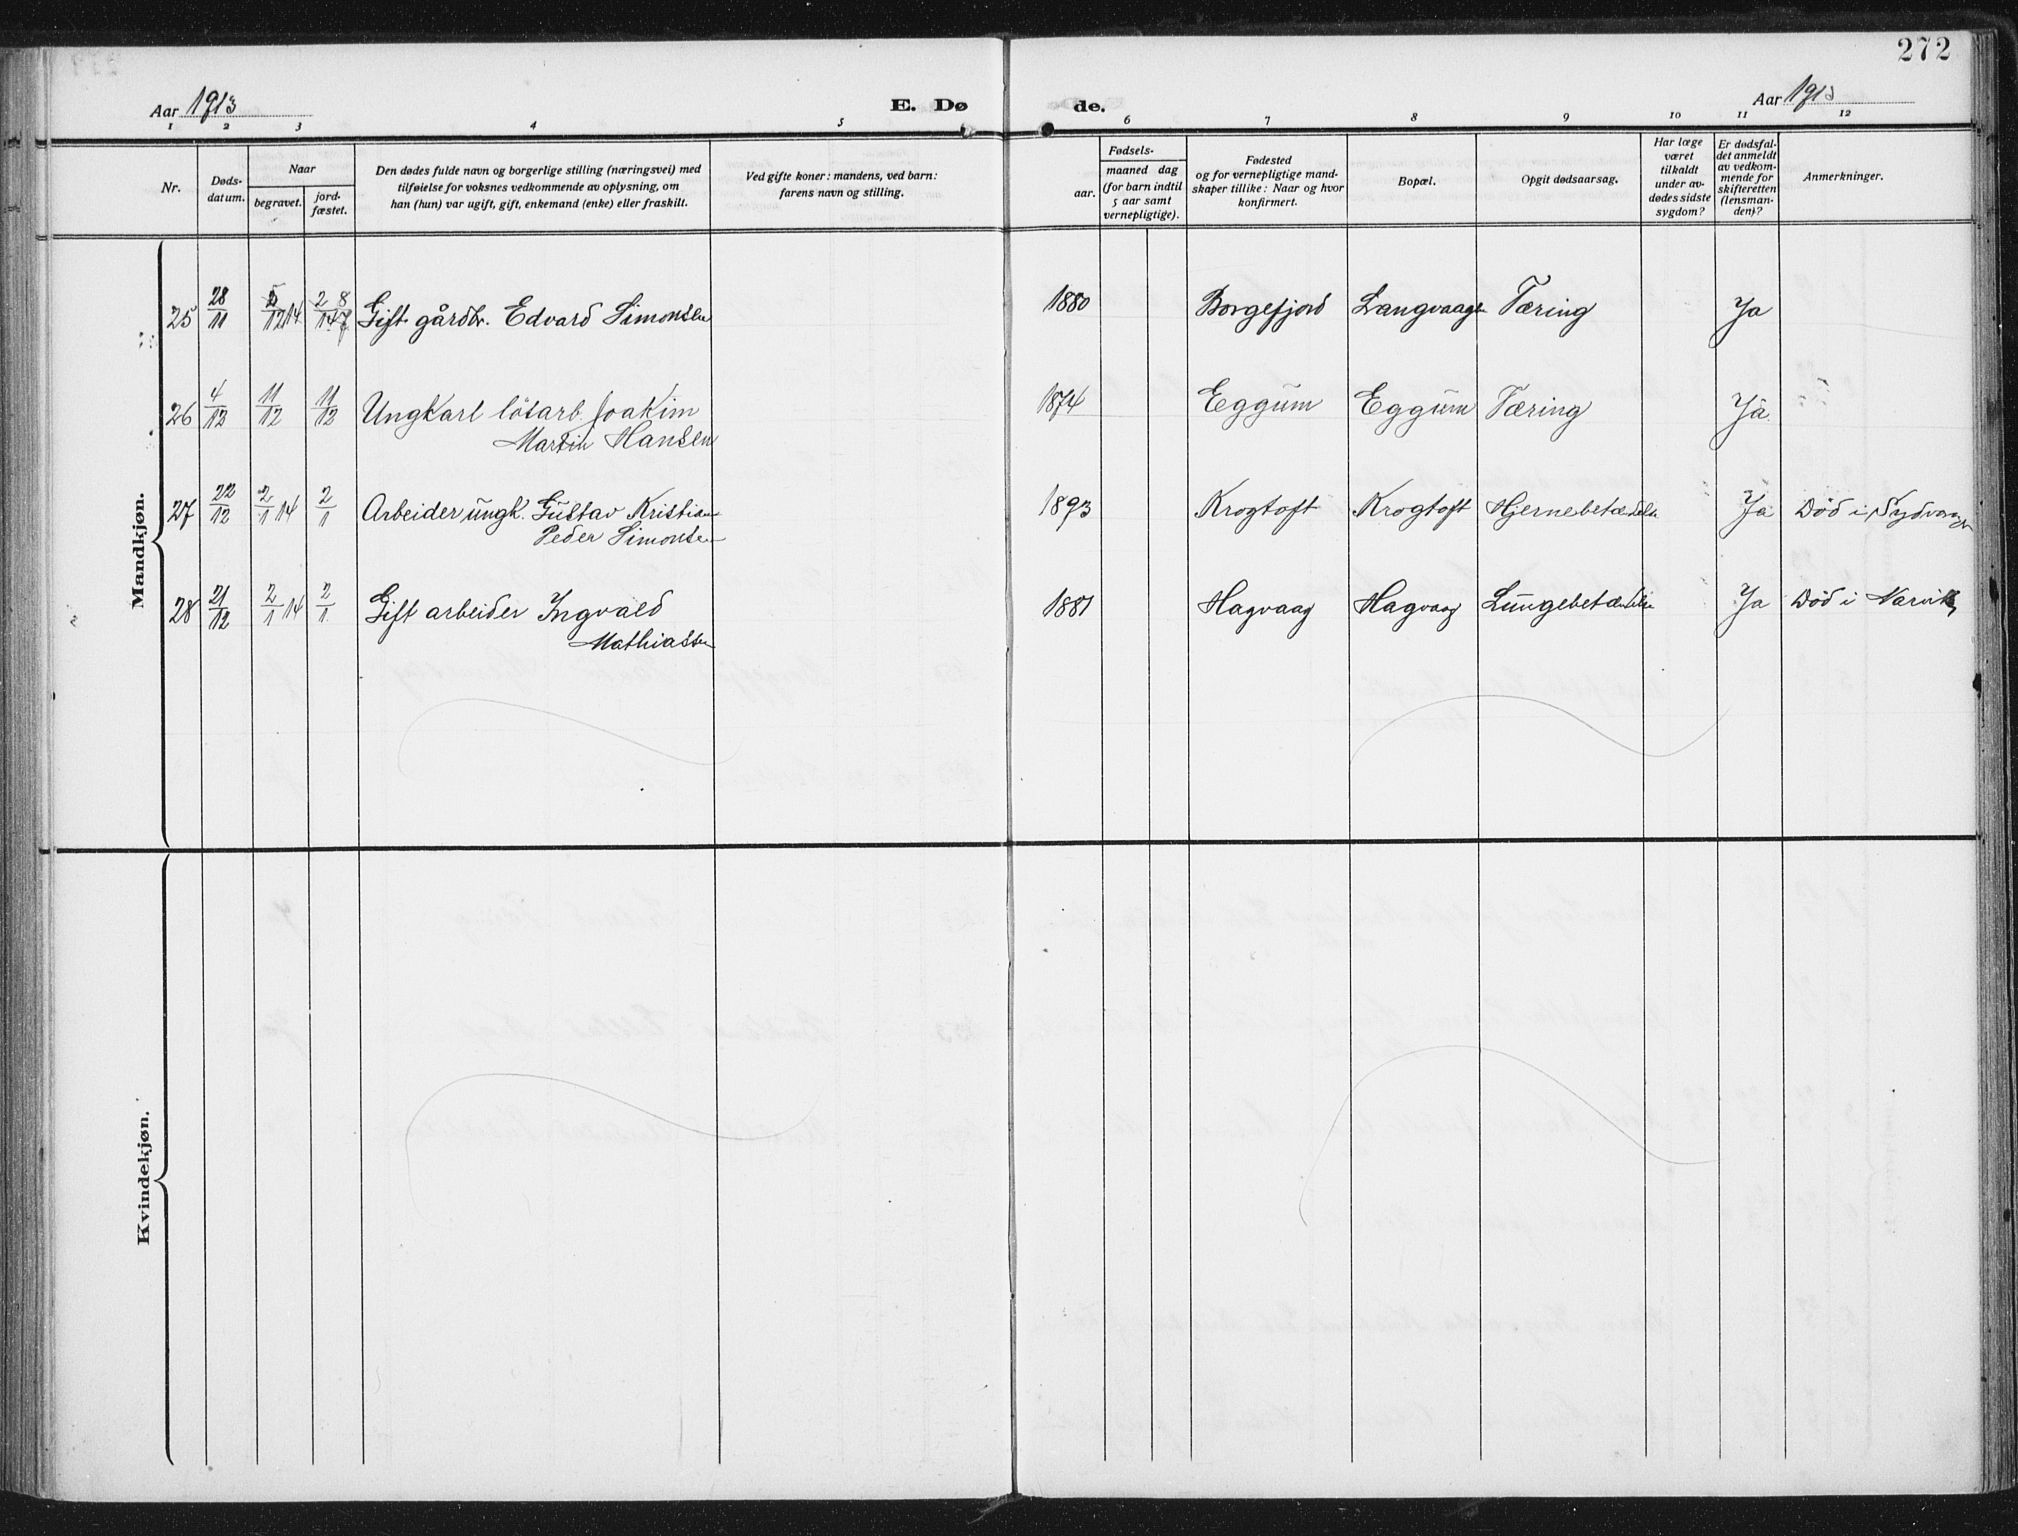 272
Aar 1913
E. Dø
de.
Aar 1913
1 2 3 4 5 6 7 8 9 10 11 12
Nr.
Døds-
datum.
Naar
begravet.
jord-
fæstet.
Den dødes fulde navn og borgerlige stilling (næringsvei) med
tilføielse for voksnes vedkommende av oplysning, om
han (hun) var ugift, gift, enkemand (enke) eller fraskilt.
Ved gifte koner: mandens, ved barn:
farens navn og stilling.
Fødsels-
aar.
maaned dag
(for barn indtil
5 aar samt
vernepligtige).
Fødested
og for vernepligtige mand-
skaper tillike: Naar og hvor
konfirmert.
Bopæl.
Opgit dødsaarsag.
Har læge
været
tilkaldt
under av-
dødes sidste
sygdom?
Er dødsfal-
det anmeldt
av vedkom-
mende for
skifteretten
(lensman-
den)?
Anmerkninger.
Mandkjøn.
25 28/11 5/12 14 Gift gårdbr. Edvard Simonsen 1880 Borgefjord Langvaagen Tæring Ja
26 4/12 11/12 11/12 Ungkarl løsarb. Joakim 1874 Eggum Eggum Tæring Ja
Martin Hansen
27 22/12 2/1 14 2/1 Arbeider ungk. Gustav Kristian 1893 Krogtoft Krogtoft Hjernebetændelse Ja Død i Sydvaagen
Peder Simonsen
28 21/12 2/1 14 2/1 Gift arbeider Ingvald 1881 Hagvaag Hagvaag Lungebetændelse Ja Død i Narvik
Mathiassen
Kvindekjøn.